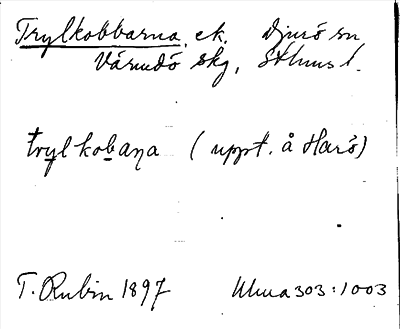 Trylkobbarna, ek. Djurö sn
Värmdö skg, Sthms l.
trylkobaṇa (uppt. å Harö)
T. Rubin 1897 Ulma 303:1003